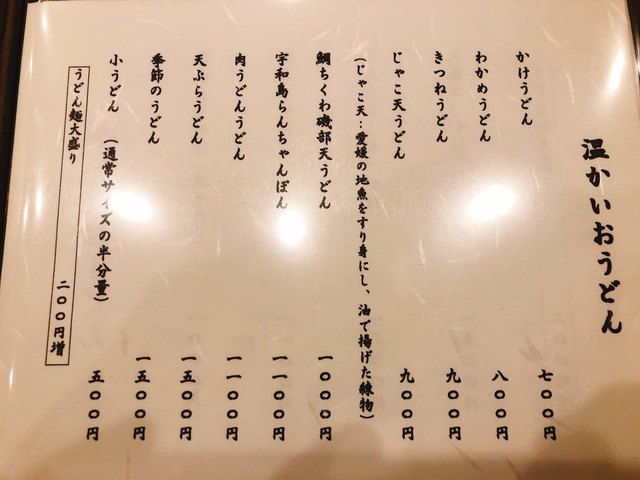 温かいおうどん
かけうどん 七〇〇円
わかめうどん 八〇〇円
きつねうどん 九〇〇円
じゃこ天うどん 九〇〇円
(じゃこ天：愛媛の地魚をすり身にし、油で揚げた練物)
鯛ちくわ磯部天うどん 一〇〇〇円
宇和島らんちゃんぽん 一一〇〇円
肉うどんうどん 一一〇〇円
天ぷらうどん 一五〇〇円
季節のうどん 一五〇〇円
小うどん (通常サイズの半分量) 五〇〇円
うどん麺大盛り 二〇〇円増